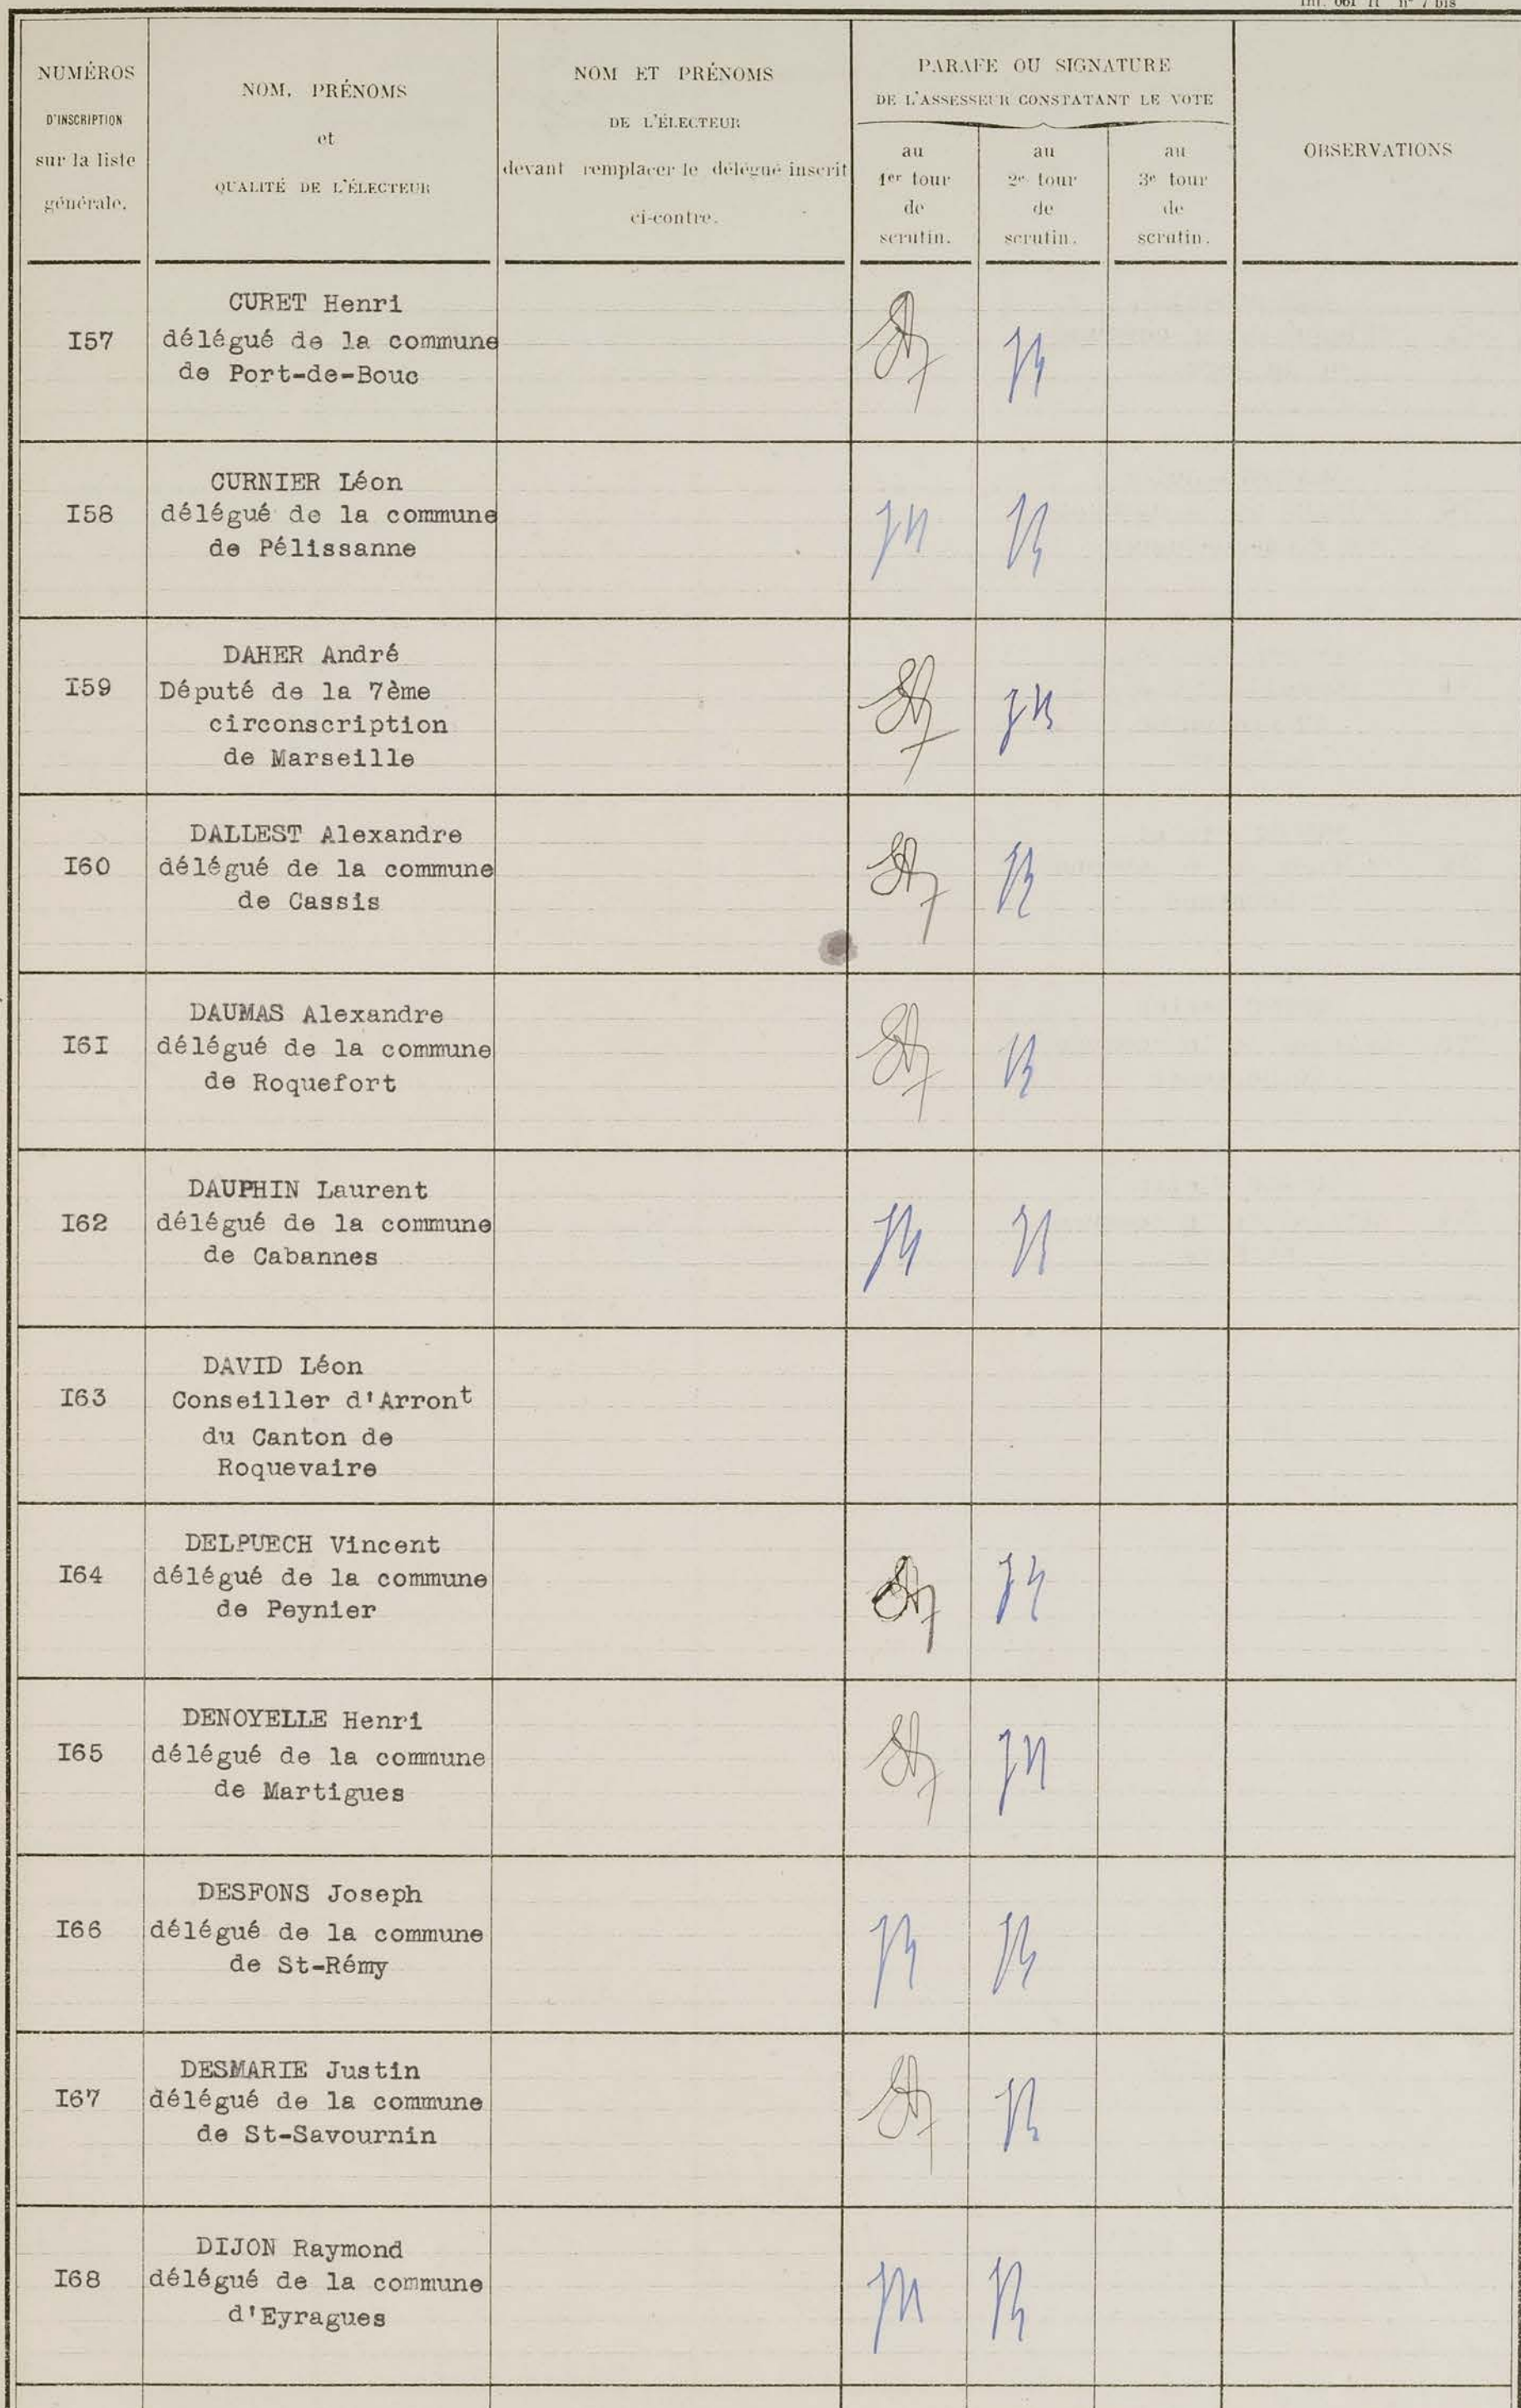 NUMÉROS
D'INSCRIPTION
sur la liste
générale.
NOM, PRÉNOMS
et
QUALITÉ DE L'ÉLECTEUR
NOM ET PRÉNOMS
DE L'ÉLECTEUR
devant remplacer le délégué inscrit
ci-contre.
PARAFE OU SIGNATURE
DE L'ASSESSEUR CONSTATANT LE VOTE
au
1er tour
de
scrutin.
au
2e tour
de
scrutin.
au
3e tour
de
scrutin.
OBSERVATIONS
I57
CURET Henri
délégué de la commune
de Port-de-Bouc
I58
CURNIER Léon
délégué de la commune
de Pélissanne
I59
DAHER André
Député de la 7ème
circonscription
de Marseille
I60
DALLEST Alexandre
délégué de la commune
de Cassis
I6I
DAUMAS Alexandre
délégué de la commune
de Roquefort
I62
DAUPHIN Laurent
délégué de la commune
de Cabannes
I63
DAVID Léon
Conseiller d'Arront
du Canton de
Roquevaire
I64
DELPUECH Vincent
délégué de la commune
de Peynier
I65
DENOYELLE Henri
délégué de la commune
de Martigues
I66
DESFONS Joseph
délégué de la commune
de St-Rémy
I67
DESMARIE Justin
délégué de la commune
de St-Savournin
I68
DIJON Raymond
délégué de la commune
d'Eyragues